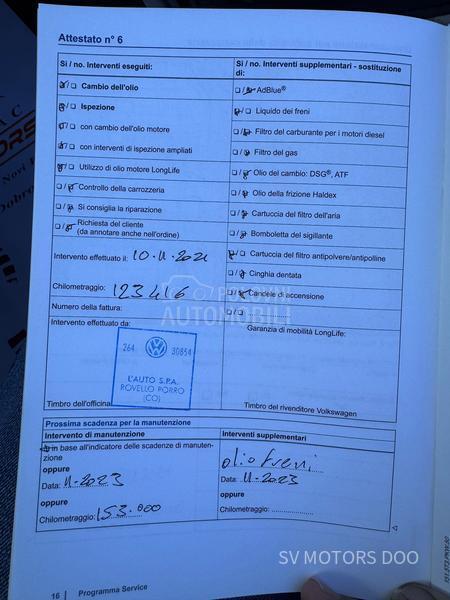 Attestato n° 6
Si / no. Interventi eseguiti:
Cambio dell'olio
Ispezione
con cambio dell'olio motore
con interventi di ispezione ampliati
Utilizzo di olio motore LongLife
Controllo della carrozzeria
Si consiglia la riparazione
Richiesta del cliente
(da annotare anche nell'ordine)
Intervento effettuato il: 10.11.2021
Chilometraggio: 123416
Numero della fattura:
Si / no. Interventi supplementari - sostituzione
di:
AdBlue®
Liquido dei freni
Filtro del carburante per i motori diesel
Filtro del gas
Olio del cambio: DSG®, ATF
Olio della frizione Haldex
Cartuccia del filtro dell'aria
Bomboletta del sigillante
Cartuccia del filtro antipolvere/antipolline
Cinghia dentata
Candele di accensione
POLOVNI
AUTOMOBILI
Intervento effettuato da:
264 30854
L'AUTO S.P.A.
ROVELLO PORRO
(CO)
Timbro dell'officina
Garanzia di mobilità LongLife:
Timbro del rivenditore Volkswagen
Prossima scadenza per la manutenzione
Intervento di manutenzione
in base all'indicatore delle scadenze di manuten-
zione
oppure
Data: 11-2023
oppure
Chilometraggio: 153.000
Interventi supplementari
olio freni
Data: 11-2023
oppure
Chilometraggio:
16 Programma Service
SV MOTORS DOO